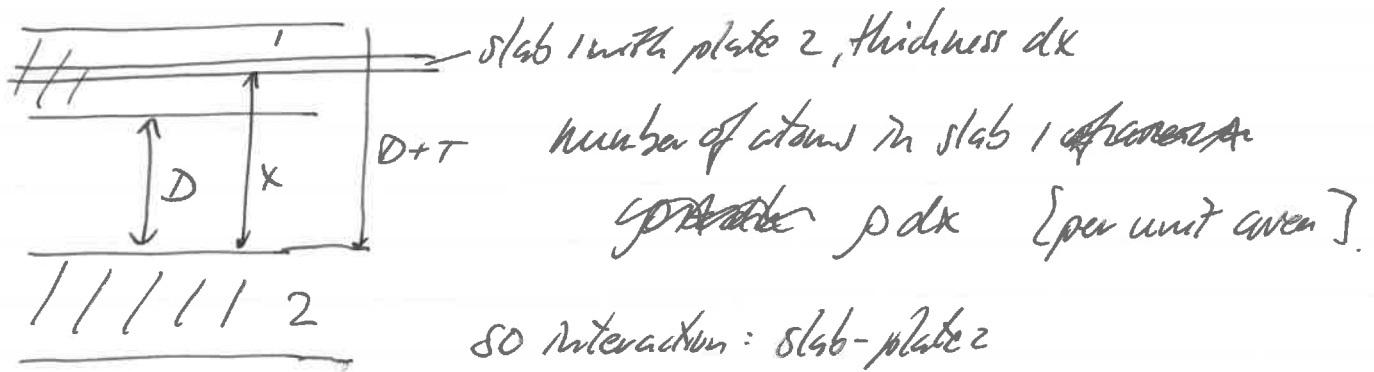 1
slab 1 with plate 2, thickness dx
number of atoms in slab 1
D+T
D
x
ρ dx [per unit area].
2
so interaction: slab-plate 2